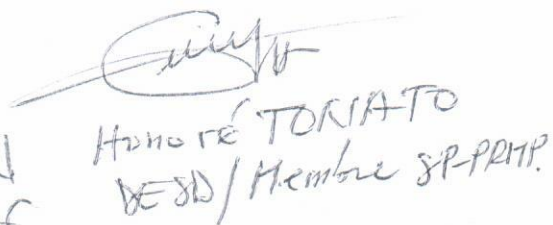 Honoré TONATO
DESD/Membre SP-PRMP.